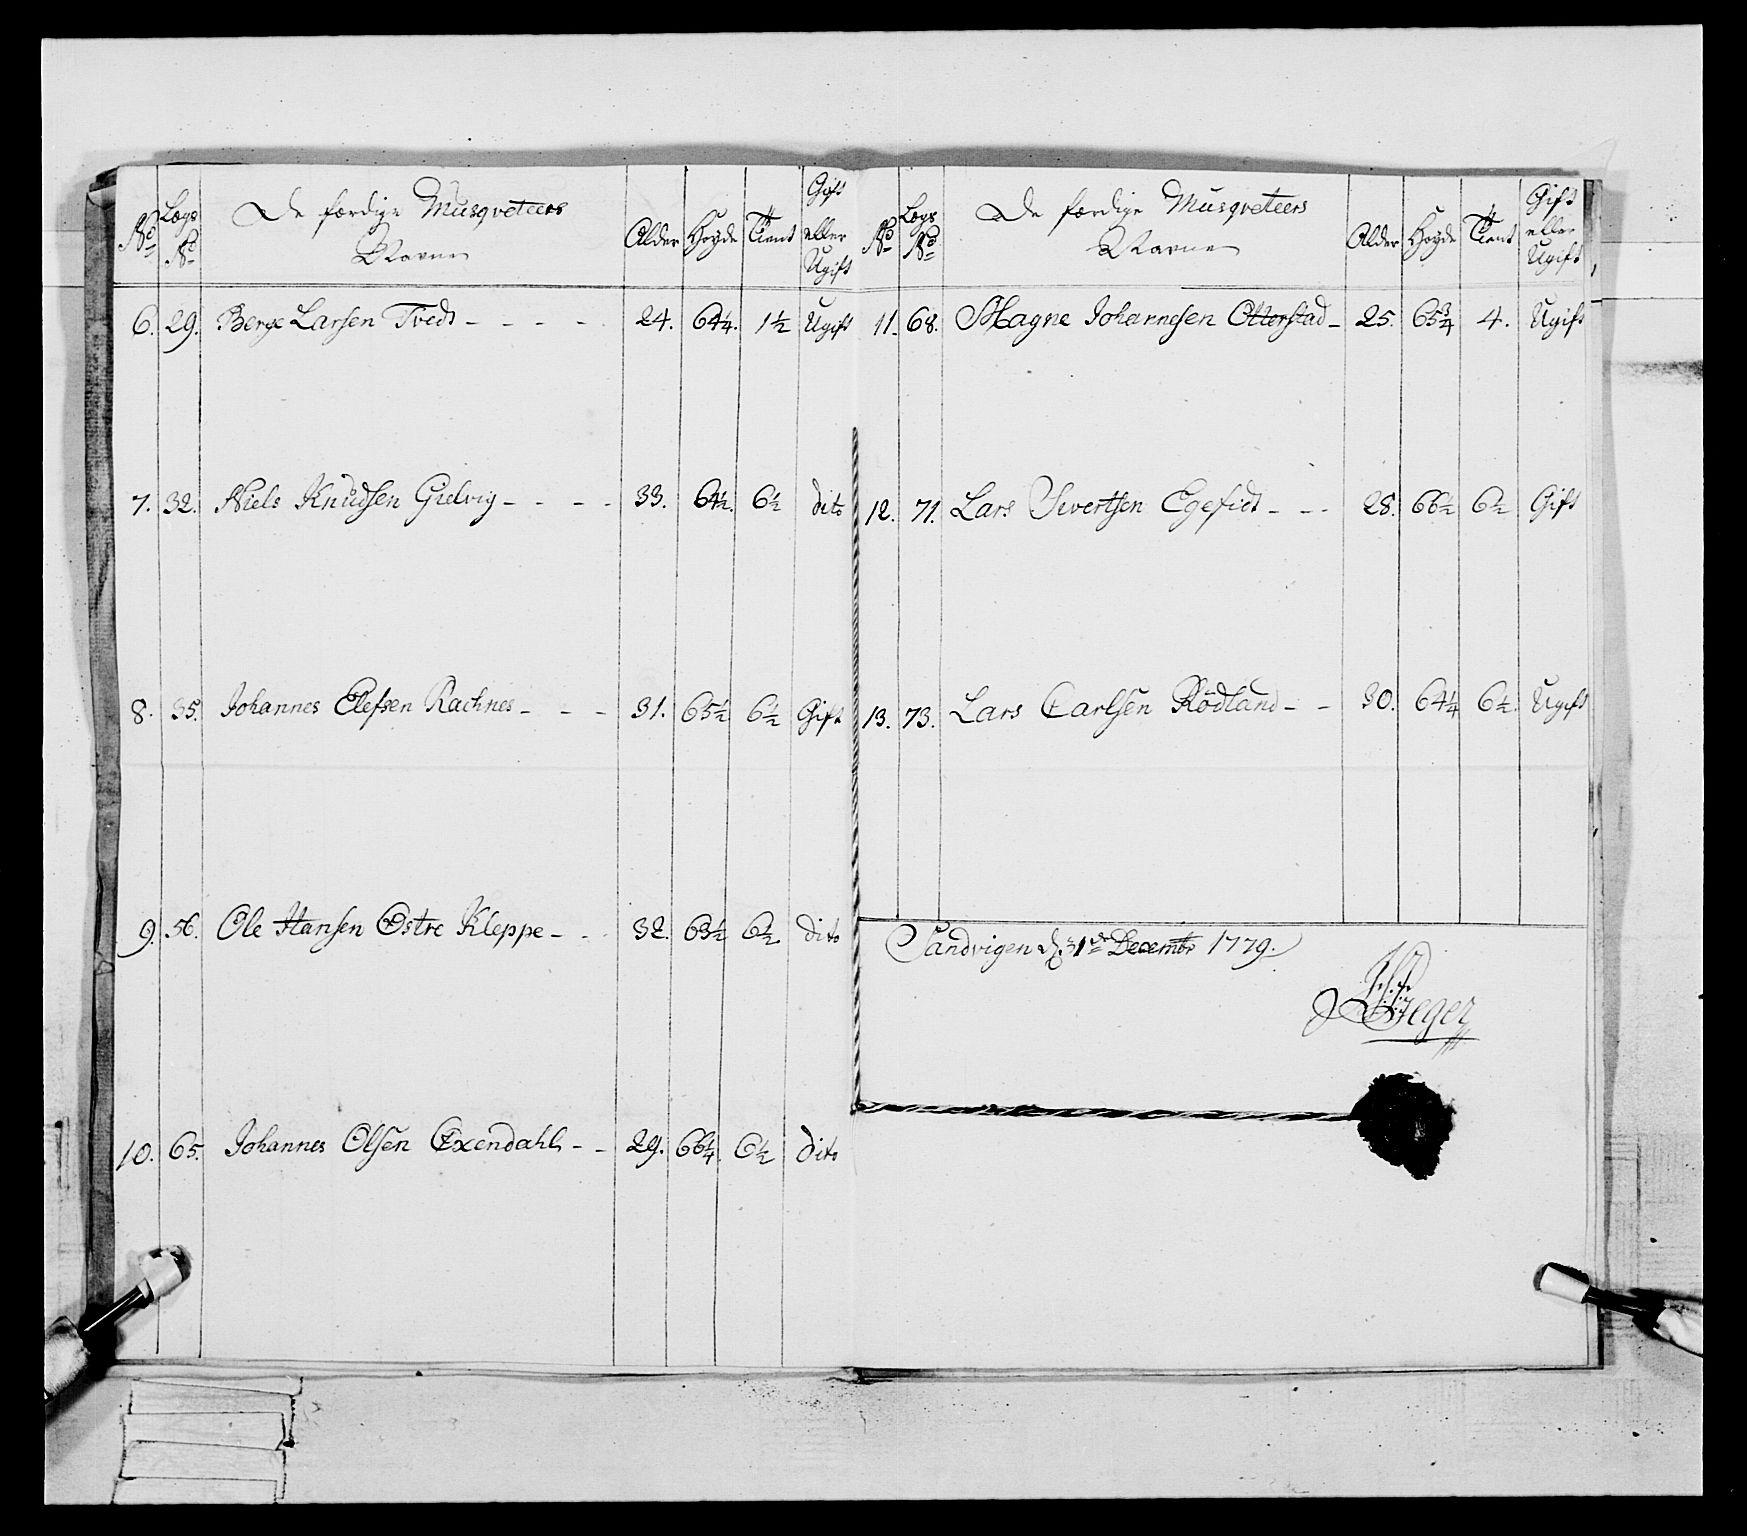 No Lægs No De færdige Musqveteers Navne Alder Høyde Tient Gift eller Ugift
6. 29. Berge Larsen Tvedt - - - - - 24. 64¼. 1½ Ugift
7. 32. Niels Knudsen Gielvig - - - - 33. 64½. 6½ dito
8. 35. Johannes Elefsen Rachnes - - - 31. 65½ 6½ Gift
9. 56. Ole Hansen Østre Kleppe - - - 32. 63½ 6½ dito
10. 65. Johannes Olsen Exendahl - - 29. 66¼. 6½ dito
No Lægs No De færdige Musqveteers Navne Alder Høyde Tient Gift eller Ugift
11. 68. Magne Johannesen Otterstad - 25. 65¾ 4. Ugift
12. 71. Lars Sivertsen Egefidt - - - 28. 66½ 6½ Gift
13. 73. Lars Carlsen Rödland - - 30. 64¼ 6½. Ugift
Sandvigen d. 31te Decembr 1779.